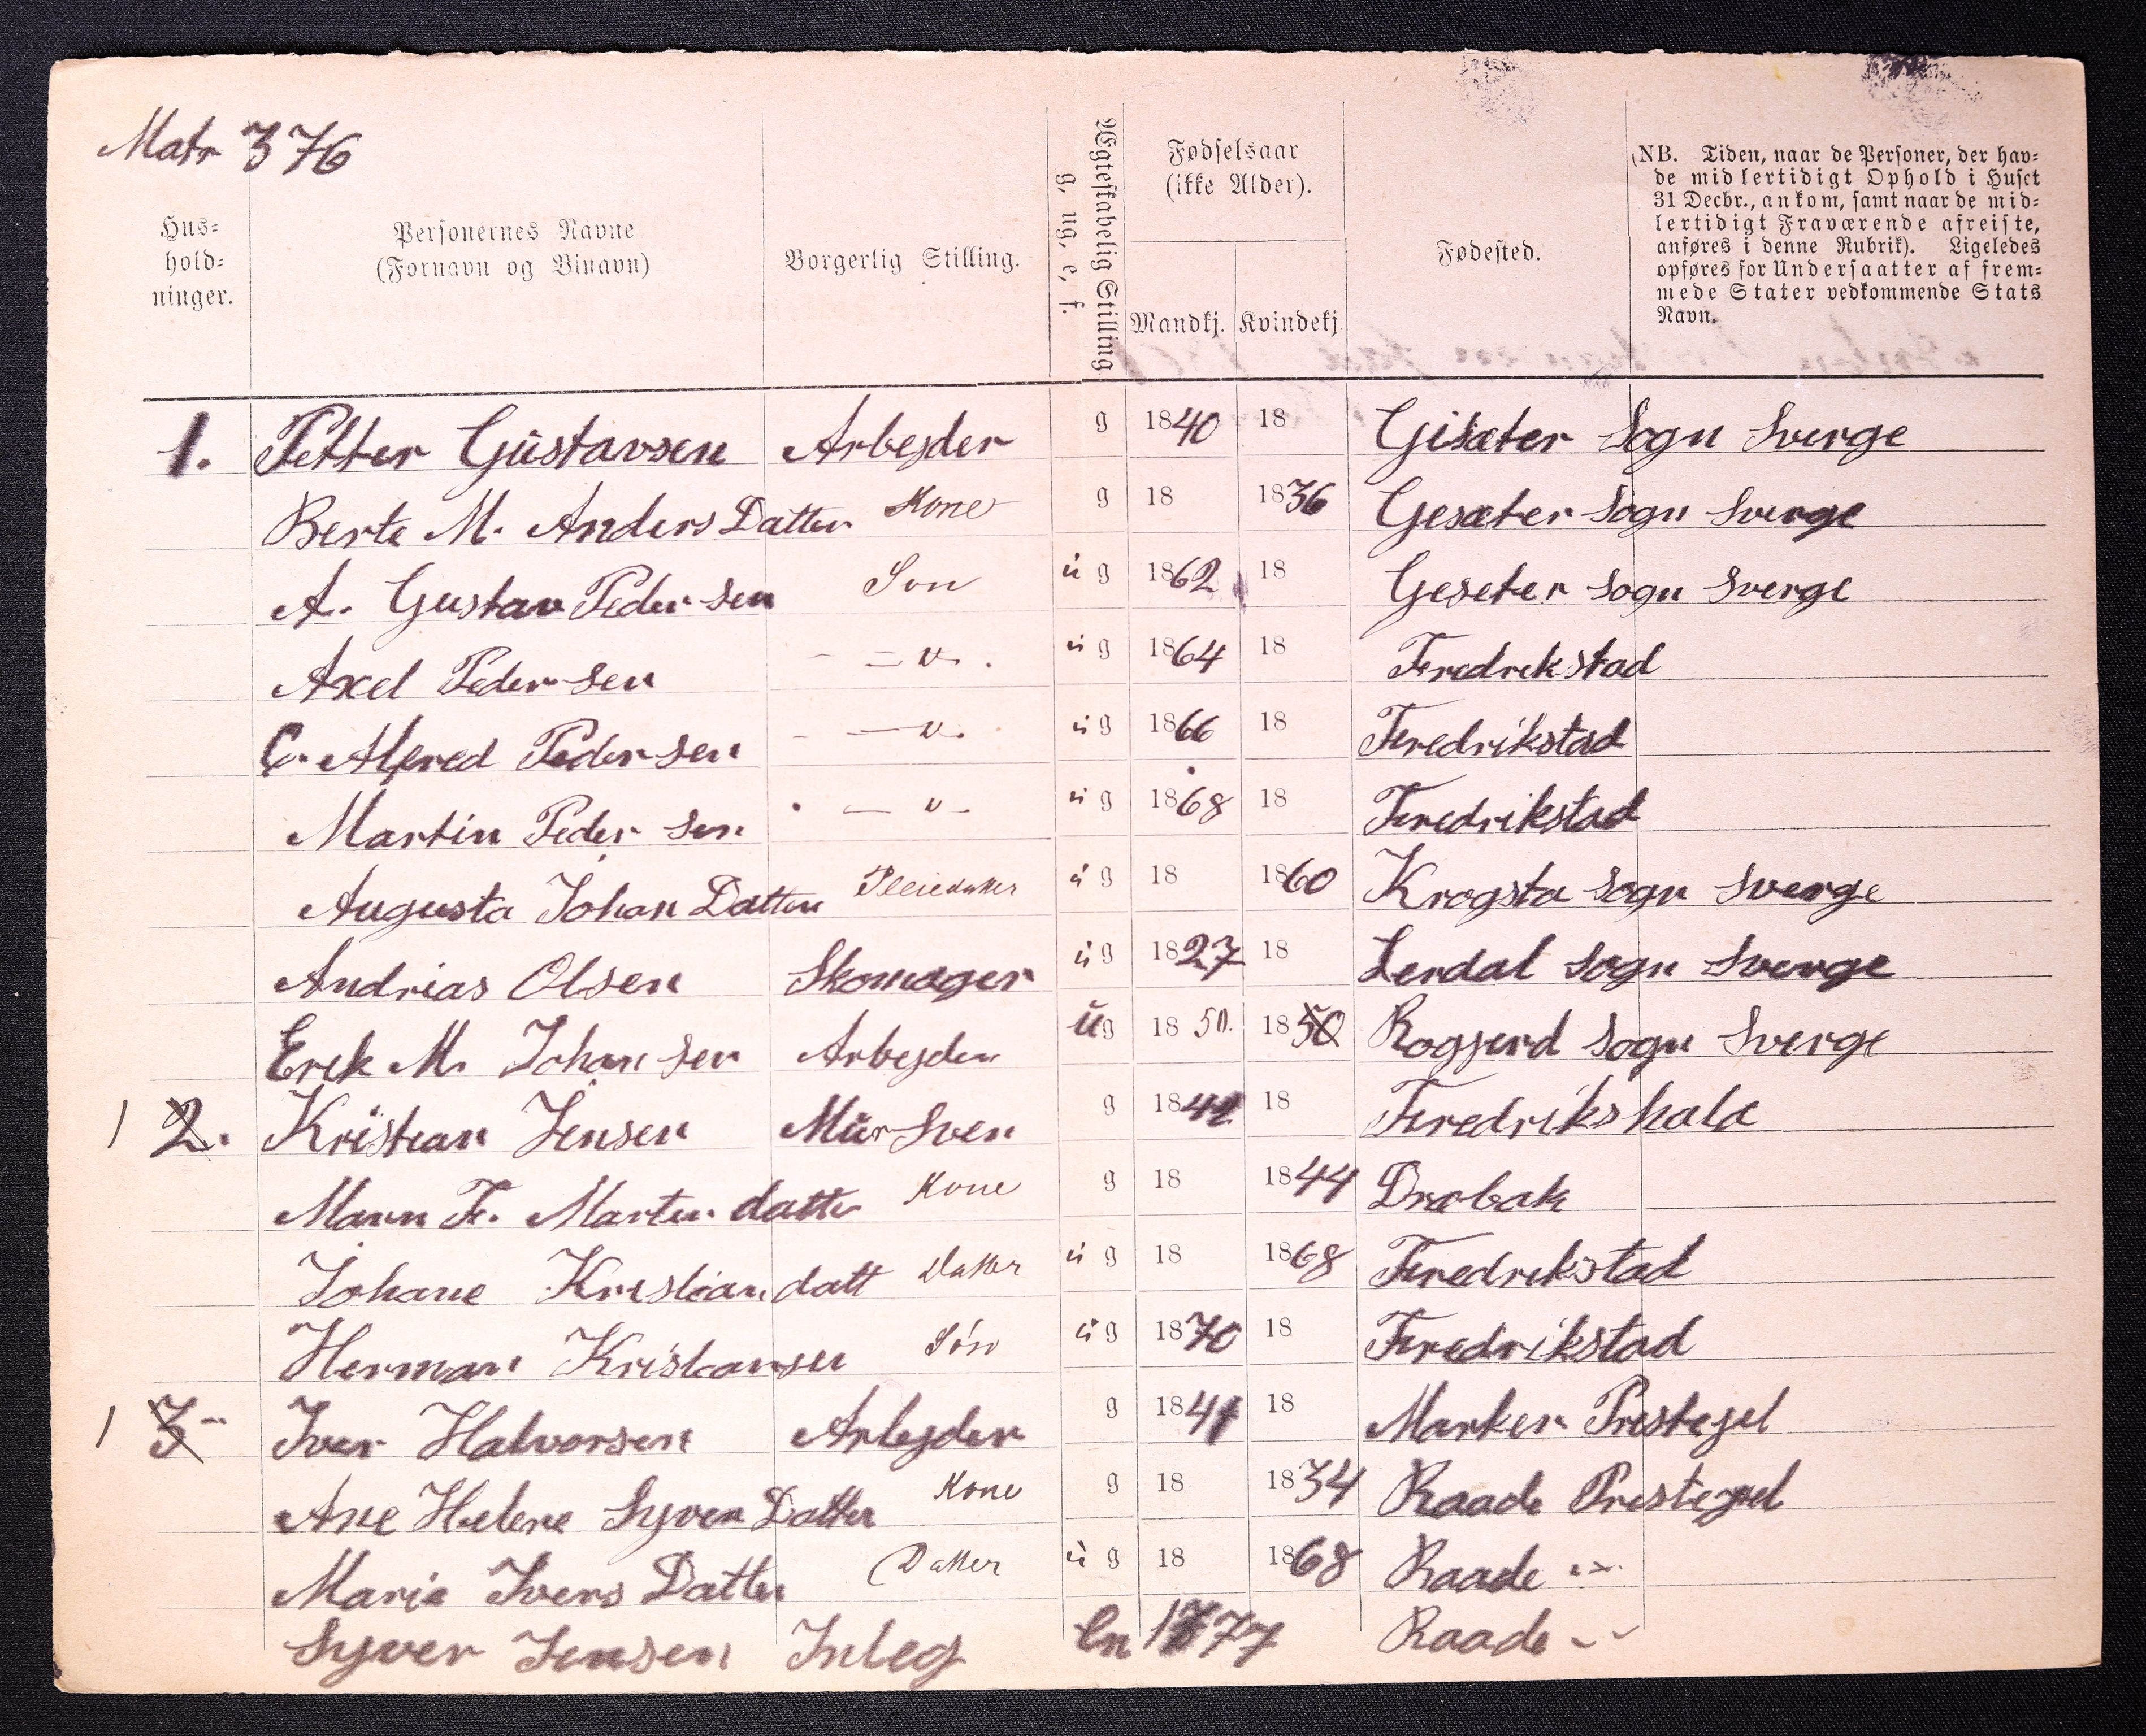 Matr 376
Hus=
hold=
ninger.
Personernes Navne
(Fornavn og Binavn)
Borgerlig Stilling.
Ægteskabelig Stilling
g, ug, e, f.
Fødselsaar
(ikke Alder).
Mandkj. Kvindekj.
Fødested.
NB. Tiden, naar de Personer, der hav=
de midlertidigt Ophold i Huset
31 Decbr., ankom, samt naar de mid=
lertidigt Fraværende afreiste,
anføres i denne Rubrik). Ligeledes
opføres for Undersaatter af frem=
mede Stater vedkommende Stats
Navn.
1. Petter Gustavsen Arbejder g 1840 18 Gisæter Sogn Sverge
Berte M. Anders Datter Kone g 18 1836 Gesæter Sogn Sverge
A. Gustav Pedersen Son ug 1862 18 Geseter Sogn Sverge
Axel Pedersen - = v. ug 1864 18 Fredrekstad
C. Alfred Pedersen - — v. ug 1866 18 Fredrikstad
Martin Pedersen — v - ug 1868 18 Fredrikstad
Augusta Johan Datter Pleiedatter ug 18 1860 Krogsta Sogn Sverge
Andrias Olsen Skomager ug 1827 18 Lerdal Sogn Sverge
Erek M. Johansen Arbejder ug 18 50. 1850 Sogn Sverge
1 2. Kristian Jensen Mur Sven g 18 18 Fredrikshald
F. Marten datter Kone g 18 1844 Drøbak
Johane Kristian datt Datter ug 18 1868 Fredrekstad
Herman Kristiansen Són ug 1870 18 Fredrikstad
1 3 Iver Halvorsen Arbejder g 1841 18 Marker Prestegjel
Ane Helene Syver Datter Kone g 18 1834 Raade Prestegjel
Marie Ivers Datter Datter ug 18 1868 Raade -"-
Syver Jensen Inleg En 1777 Raade -"-